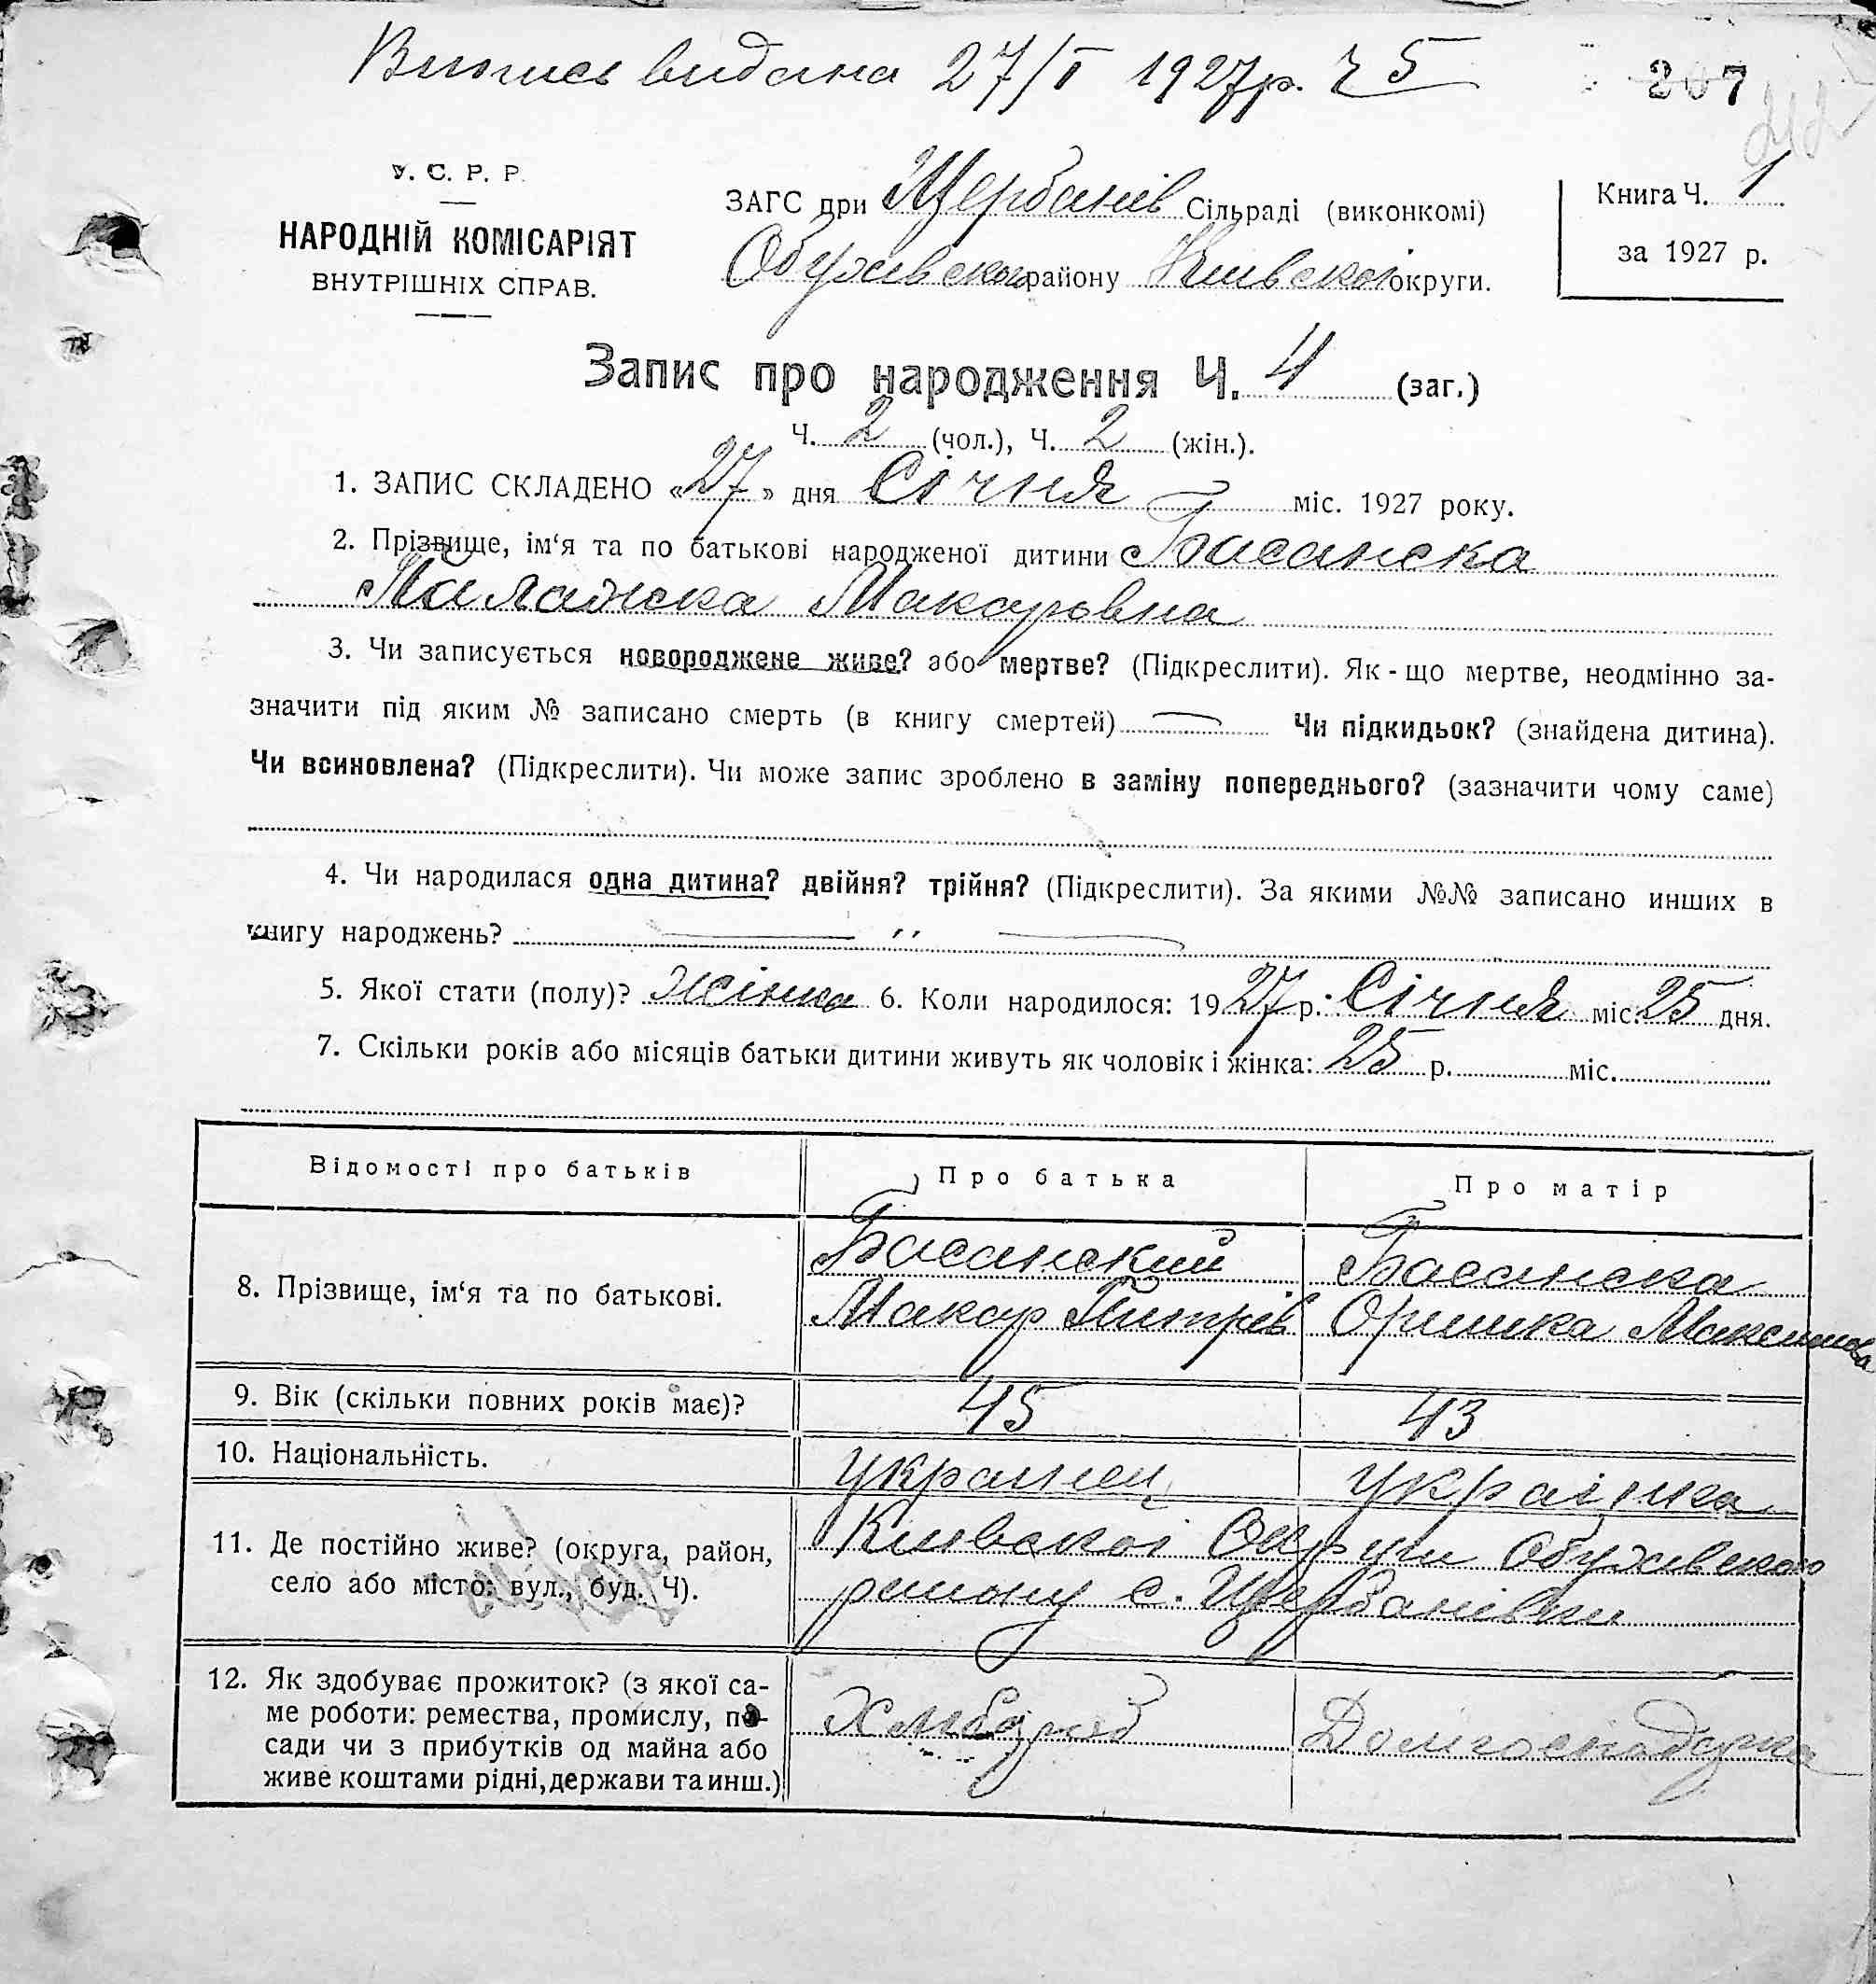 Випись видана 27/I 1927р. Ч 5
207
У. С. Р. Р.
НАРОДНІЙ КОМІСАРІЯТ
ВНУТРІШНІХ СПРАВ.
ЗАГС при Щербанів Сільраді (виконкомі)
Обухівского району Київскоі округи.
Книга Ч. 1
за 1927 р.
Запис про народження Ч. 4 (заг.)
Ч. 2 (чол.), Ч. 2 (жін.).
1. ЗАПИС СКЛАДЕНО «27» дня Січня міс. 1927 року.
2. Прізвище, ім‘я та по батькові народженої дитини Басанска
Палажка Макаровна
3. Чи записується новороджене живе? або мертве? (Підкреслити). Як - що мертве, неодмінно за-
значити під яким № записано смерть (в книгу смертей) — Чи підкидьок? (знайдена дитина).
Чи всиновлена? (Підкреслити). Чи може запис зроблено в заміну попереднього? (зазначити чому саме)
4. Чи народилася одна дитина? двійня? трійня? (Підкреслити). За якими №№ записано инших в
книгу народжень? — ״ —
5. Якої стати (полу)? Жінка 6. Коли народилося: 1927 р. Січня міс. 25 дня.
7. Скільки років або місяців батьки дитини живуть як чоловік і жінка: 25 р. міс.
Відомості про батьків Про батька Про матір
8. Прізвище, ім‘я та по батькові.
Басанский Басанска
Макар Дмитрів Оришка Максимова
9. Вік (скільки повних років має)? 45 43
10. Національність. Українец Українка
11. Де постійно живе? (округа, район,
село або місто: вул., буд. Ч).
Київскоі Округи Обухівского
району с. Щербанівки
12. Як здобуває прожиток? (з якої са-
ме роботи: ремества, промислу, по-
сади чи з прибутків од майна або
живе коштами рідні, держави та инш.)
Хлібороб Домгосподарка